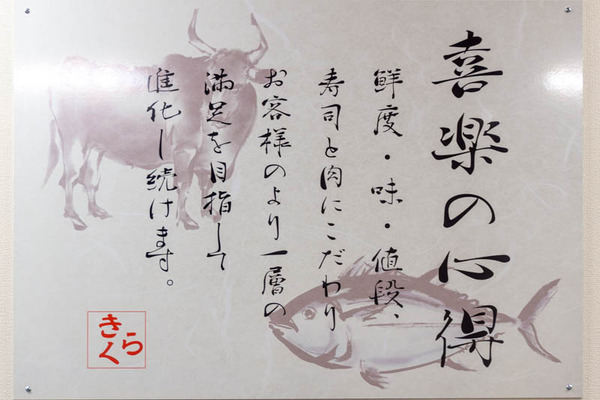 喜楽の心得
鮮度・味・値段、
寿司と肉にこだわり
お客様のより一層の
満足を目指して
進化し続けます。
きらく